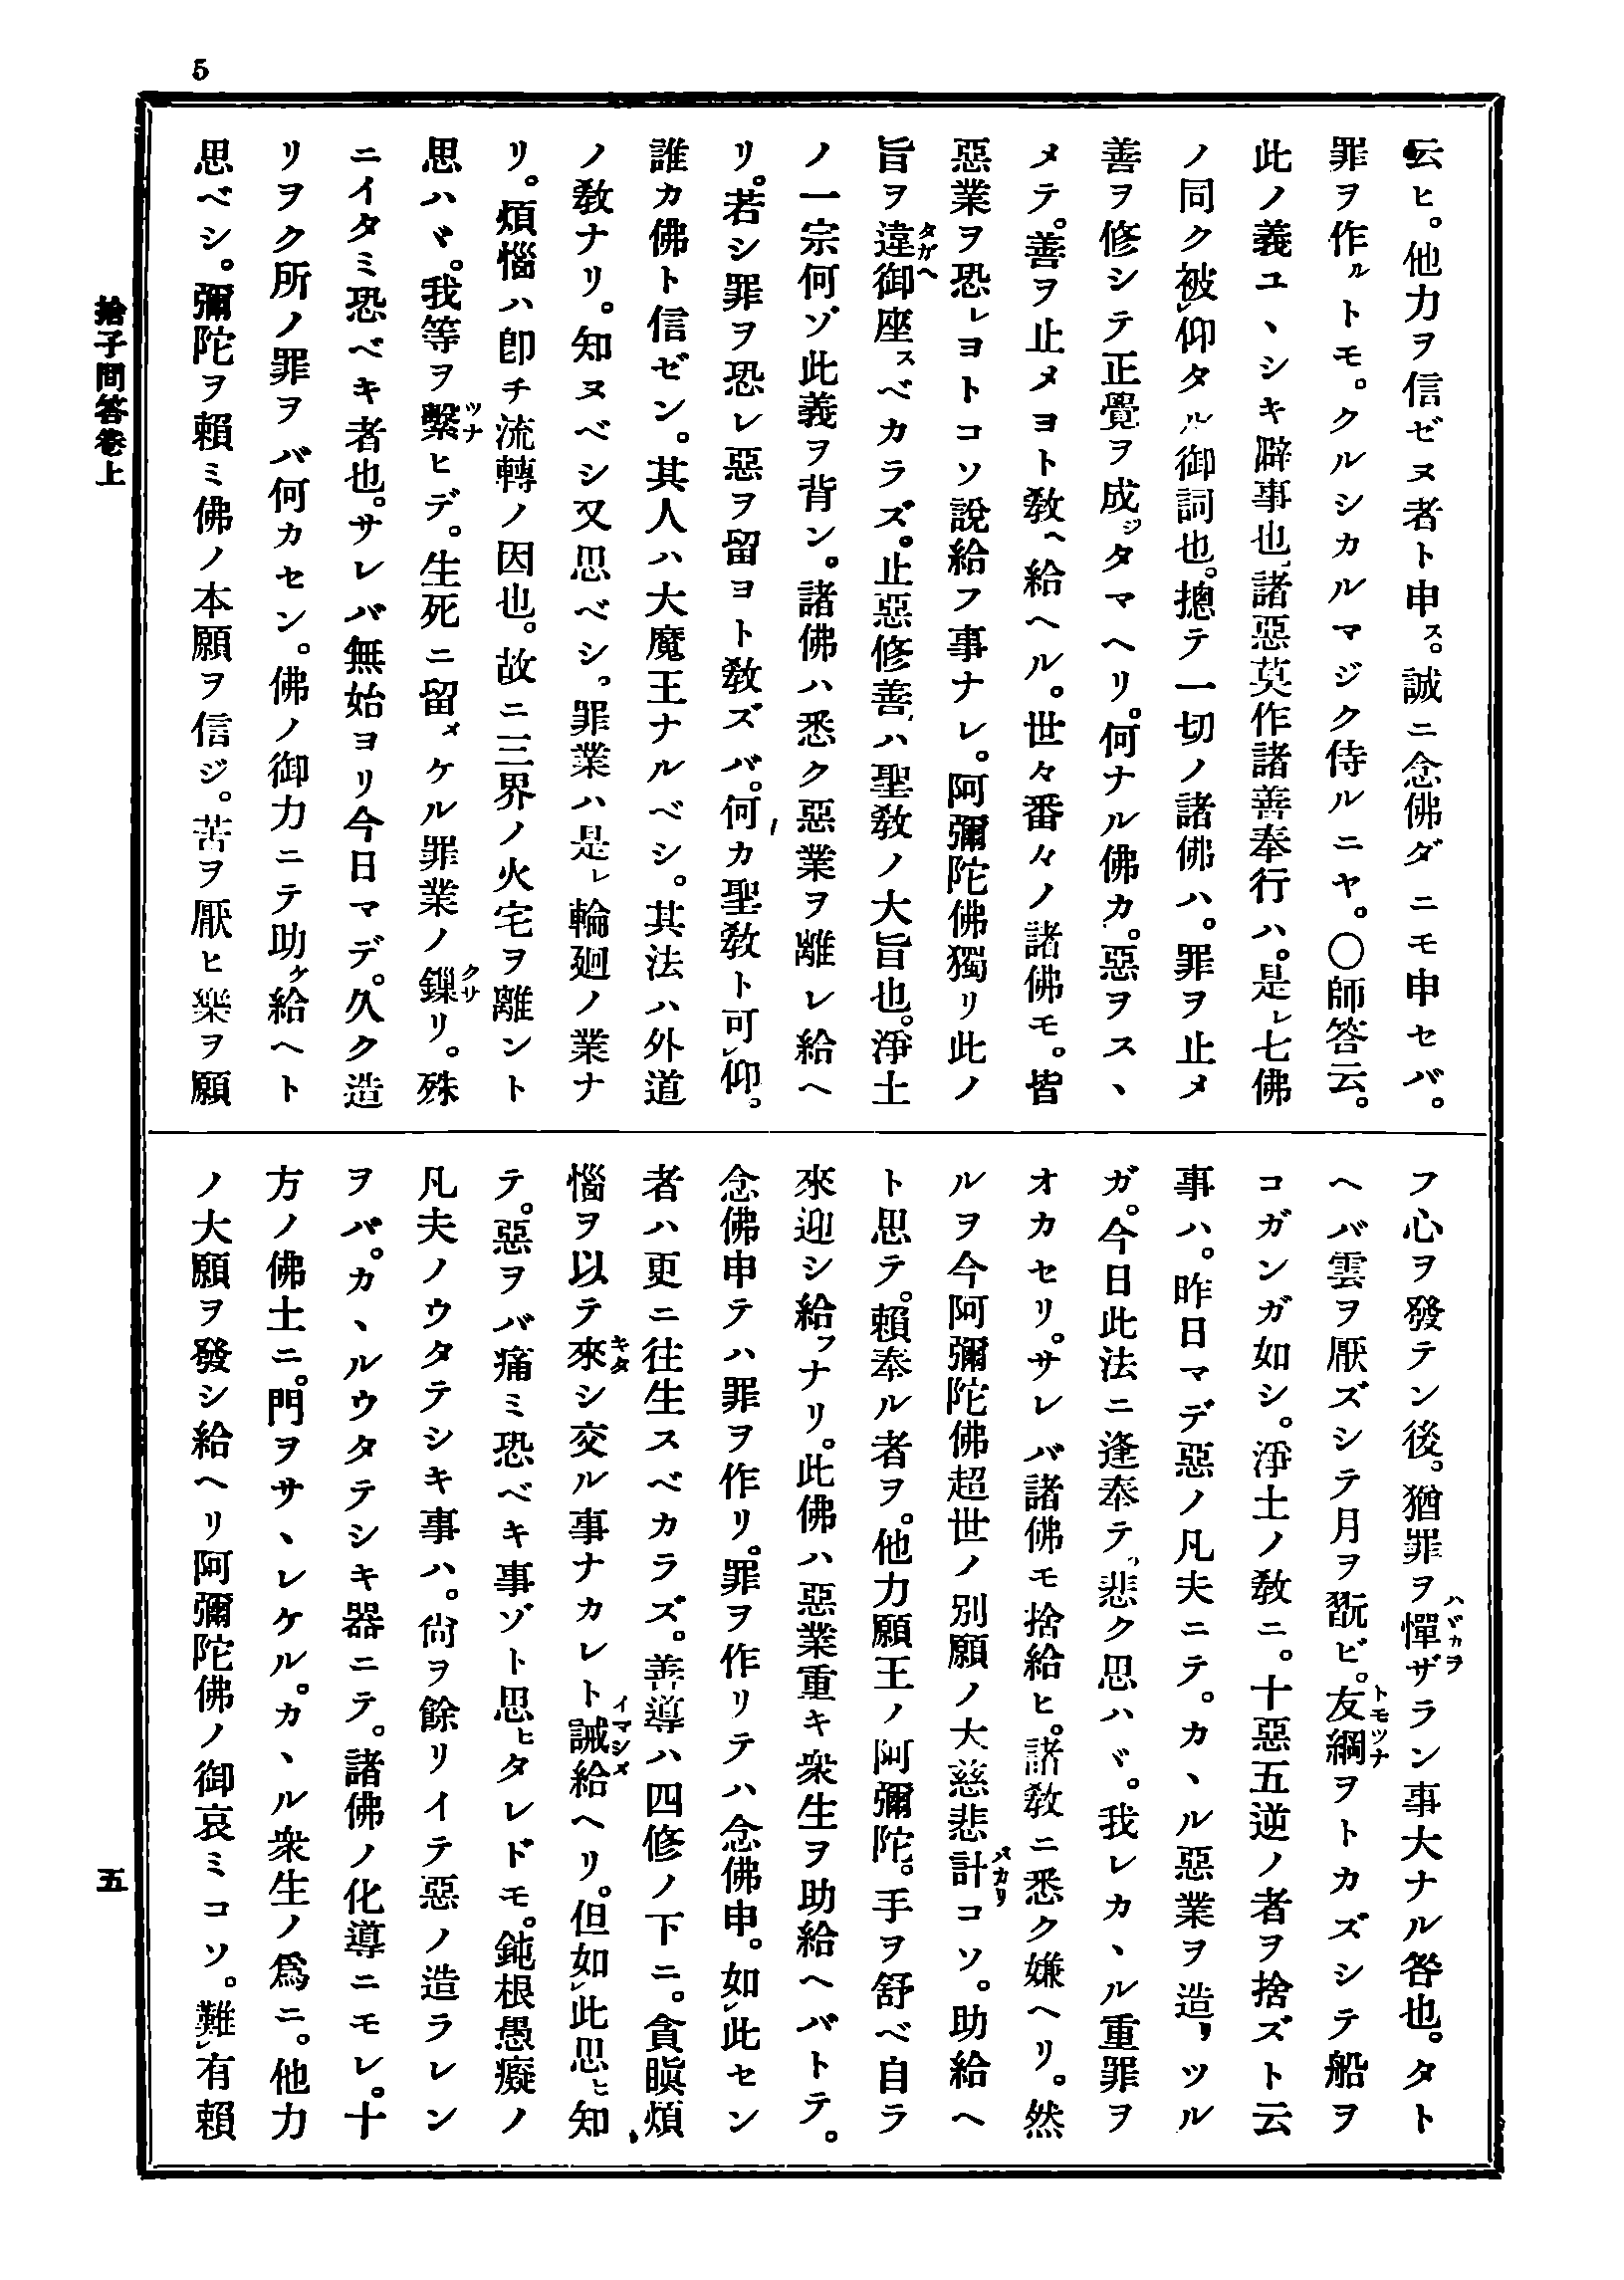 5
云ヒ。他力ヲ信ゼヌ者ト申ス。誠ニ念佛ダニモ申セバ。
罪ヲ作ルトモ。クルシカルマジク侍ルニヤ。〇師答云。
此ノ義ユヽシキ辟事也。諸惡莫作諸善奉行ハ。是レ七佛
ノ同ク被レ仰タル御詞也。摠テ一切ノ諸佛ハ。罪ヲ止メ
善ヲ修シテ正覺ヲ成ジタマヘリ。何ナル佛カ。惡ヲスヽ
メテ。善ヲ止メヨト敎ヘ給ヘル。世々番々ノ諸佛モ。皆
惡業ヲ恐レヨトコソ說給フ事ナレ。阿彌陀佛獨リ此ノ
旨ヲ違タガヘ御座スベカラズ。止惡修善ハ聖敎ノ大旨也。淨土
ノ一宗何ゾ此義ヲ背ン。諸佛ハ悉ク惡業ヲ離レ給ヘ
リ。若シ罪ヲ恐レ惡ヲ留ヨト敎ズバ。何カ聖敎ト可レ仰。
誰カ佛ト信ゼン。其人ハ大魔王ナルベシ。其法ハ外道
ノ敎ナリ。知ヌベシ又思ベシ。罪業ハ是レ輪廻ノ業ナ
リ。煩惱ハ卽チ流轉ノ因也。故ニ三界ノ火宅ヲ離ント
思ハヾ。我等ヲ繫ツナヒデ。生死ニ留メケル罪業ノ鏁クサリ。殊
ニイタミ恐ベキ者也。サレバ無始ヨリ今日マデ。久ク造
リヲク所ノ罪ヲバ何カセン。佛ノ御力ニテ助ケ給ヘト
思ベシ。彌陀ヲ賴ミ佛ノ本願ヲ信ジ。苦ヲ厭ヒ樂ヲ願
フ心ヲ發テン後。猶罪ヲ憚ハヾカヲザラン事大ナル咎也。タト
ヘバ雲ヲ厭ズシテ月ヲ翫ビ。友綱トモツナヲトカズシテ船ヲ
コガンガ如シ。淨土ノ敎ニ。十惡五逆ノ者ヲ捨ズト云
事ハ。昨日マデ惡ノ凡夫ニテ。カヽル惡業ヲ造リツル
ガ。今日此法ニ逢奉テ。悲ク思ハヾ。我レカヽル重罪ヲ
オカセリ。サレバ諸佛モ捨給ヒ。諸敎ニ悉ク嫌ヘリ。然
ルヲ今阿彌陀佛超世ノ別願ノ大慈悲計バカリコソ。助給ヘ
ト思テ。賴奉ル者ヲ。他力願王ノ阿彌陀。手ヲ舒ベ自ラ
來迎シ給フナリ。此佛ハ惡業重キ衆生ヲ助給ヘバトテ。
念佛申テハ罪ヲ作リ。罪ヲ作リテハ念佛申。如レ此セン
者ハ更ニ往生スベカラズ。善導ハ四修ノ下ニ。貪瞋煩
惱ヲ以テ來キタシ交ル事ナカレト誡イマシメ給ヘリ。但如レ此思ヒ知
テ。惡ヲバ痛ミ恐ベキ事ゾト思ヒタレドモ。鈍根愚癡ノ
凡夫ノウタテシキ事ハ。尙ヲ餘リイテ惡ノ造ラレン
ヲバ。カヽルウタテシキ器ニテ。諸佛ノ化導ニモレ。十
方ノ佛土ニ。門ヲサヽレケル。カヽル衆生ノ爲ニ。他力
ノ大願ヲ發シ給ヘリ阿彌陀佛ノ御哀ミコソ。難レ有賴
捨子問答卷上
五